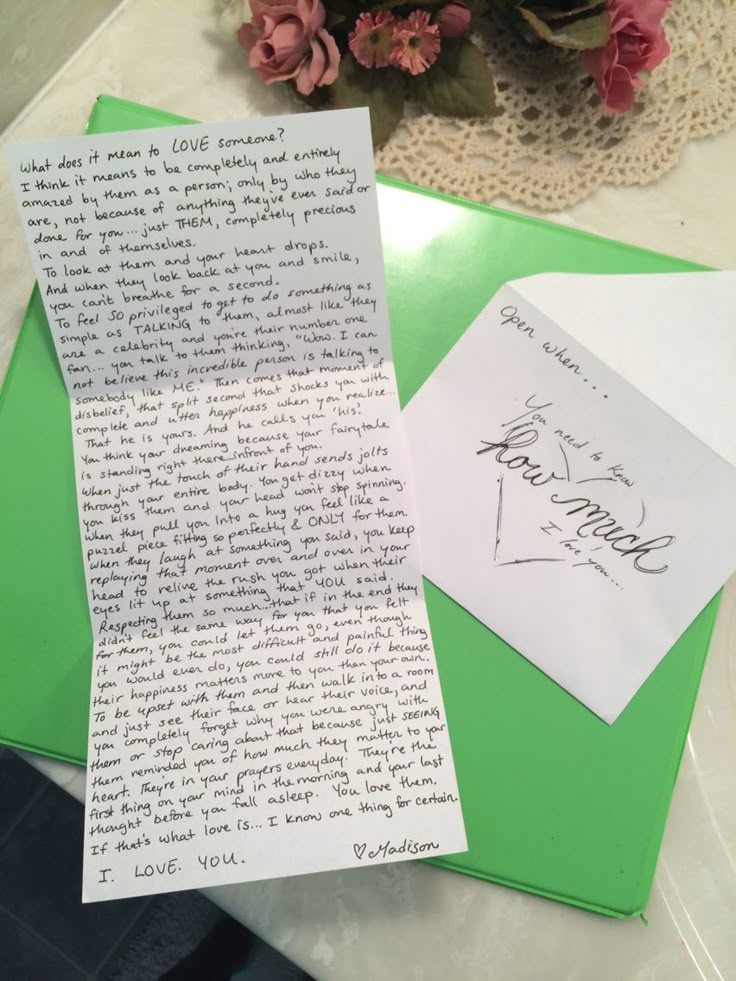 What does it mean to LOVE someone?
I think it means to be completely and entirely
amazed by them as a person; only by who they
are, not because of anything they've ever said or
done for you... just THEM, completely precious
in and of themselves.
To look at them and your heart drops.
And when they look back at you and smile,
you can't breathe for a second.
To feel SO privileged to get to do something as
simple as TALKING to them, almost like they
are a celebrity and you're their number one
fan... you talk to them thinking, "Wow. I can
not believe this incredible person is talking to
somebody like ME." Then comes that moment of
disbelief, that split second that shocks you with
complete and utter happiness when you realize...
That he is yours. And he calls you 'his'.
You think your dreaming because your fairytale
is standing right there...infront of you.
When just the touch of their hand sends jolts
through your entire body. You get dizzy when
you kiss them and your head won't stop spinning.
When they pull you into a hug you feel like a
puzzel piece fitting so perfectly & ONLY for them.
When they laugh at something you said, you keep
replaying that moment over and over in your
head to relive the rush you got when their
eyes lit up at something that YOU said.
Respecting them so much...that if in the end they
didn't feel the same way for you that you felt
for them, you could let them go, even though
it might be the most difficult and painful thing
you would ever do, you could still do it because
their happiness matters more to you than your own.
To be upset with them and then walk into a room
and just see their face or hear their voice, and
you completely forget why you were angry with
them or stop caring about that because just SEEING
them reminded you of how much they matter to your
heart. They're in your prayers everyday. They're the
first thing on your mind in the morning and your last
thought before you fall asleep. You love them.
If that's what love is... I know one thing for certain.
I. LOVE. YOU.
♡Madison
Open when...
You need to know
how much
I love you...